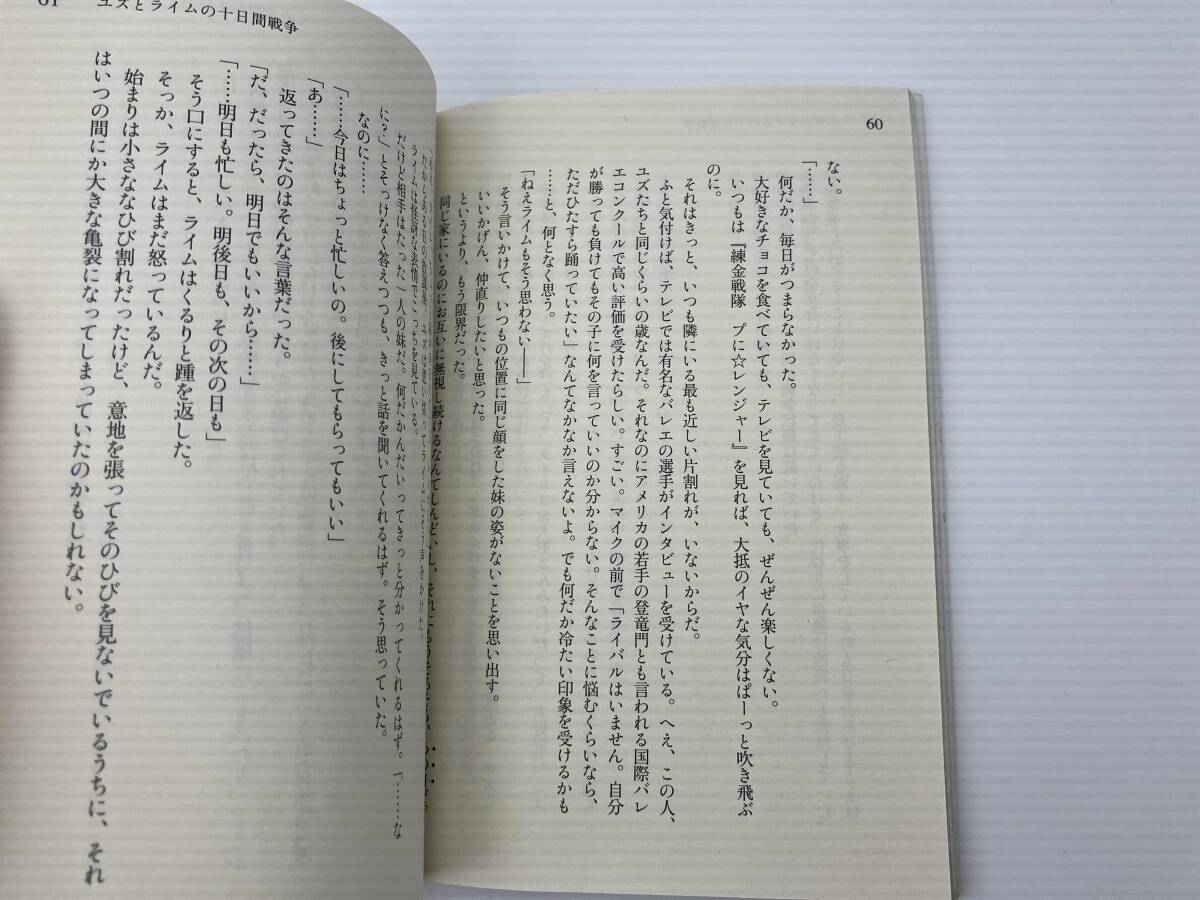 60
ない。
「……」
何だか、毎日がつまらなかった。
大好きなチョコを食べていても、テレビを見ていても、ぜんぜん楽しくない。
いつもは『練金戦隊　プに☆レンジャー』を見れば、大抵のイヤな気分はぱーっと吹き飛ぶ
のに。
それはきっと、いつも隣にいる最も近しい片割れが、いないからだ。
ふと気付けば、テレビでは有名なバレエの選手がインタビューを受けている。へえ、この人、
ユズたちと同じくらいの歳なんだ。それなのにアメリカの若手の登竜門とも言われる国際バレ
エコンクールで高い評価を受けたらしい。すごい。マイクの前で「ライバルはいません。自分
が勝っても負けてもその子に何を言っていいのか分からない。そんなことに悩むくらいなら、
ただひたすら踊っていたい」なんてなかなか言えないよ。でも何だか冷たい印象を受けるかも
……と、何となく思う。
「ねえライムもそう思わない――」
そう言いかけて、いつもの位置に同じ顔をした妹の姿がないことを思い出す。
いいかげん、仲直りしたいと思った。
というより、もう限界だった。
同じ家にいるのにお互いに無視し続けるなんてしんどいし、それに
61
ユズとライムの十日間戦争
ライムは怪訝な表情でこっちを見ている。
だけど相手はたった一人の妹だ。何だかんだいってきっと分かってくれるはず。「……な
に?」とそっけなく答えつつも、きっと話を聞いてくれるはず。そう思っていた。
なのに……
「……今日はちょっと忙しいの。後にしてもらってもいい」
「あ……」
返ってきたのはそんな言葉だった。
「だ、だったら、明日でもいいから……」
「……明日も忙しい。明後日も、その次の日も」
そう口にすると、ライムはくるりと踵を返した。
そっか、ライムはまだ怒っているんだ。
始まりは小さなひび割れだったけど、意地を張ってそのひびを見ないでいるうちに、それ
はいつの間にか大きな亀裂になってしまっていたのかもしれない。